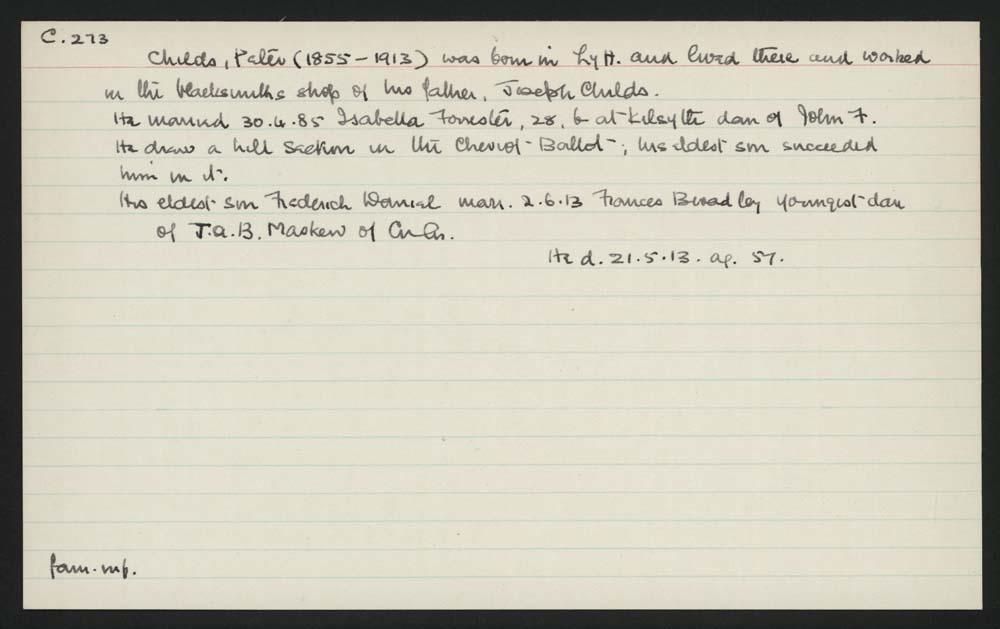 C.273
Childs, Peter (1855-1913) was born in Lytt. and lived there and worked
in the blacksmiths shop of his father, Joseph Childs.
He married 30.4.85 Isabella Forrester, 28, b at Kilsyth dau of John F.
He drew a hill section in the Cheviot Ballot; his eldest son succeeded
him in it.
His eldest son Frederick Daniel marr. 2.6.13 Frances Bradley youngest dau
of J.A.B. Maskew of
He d. 21.5.13. ag. 57.
fam. inf.